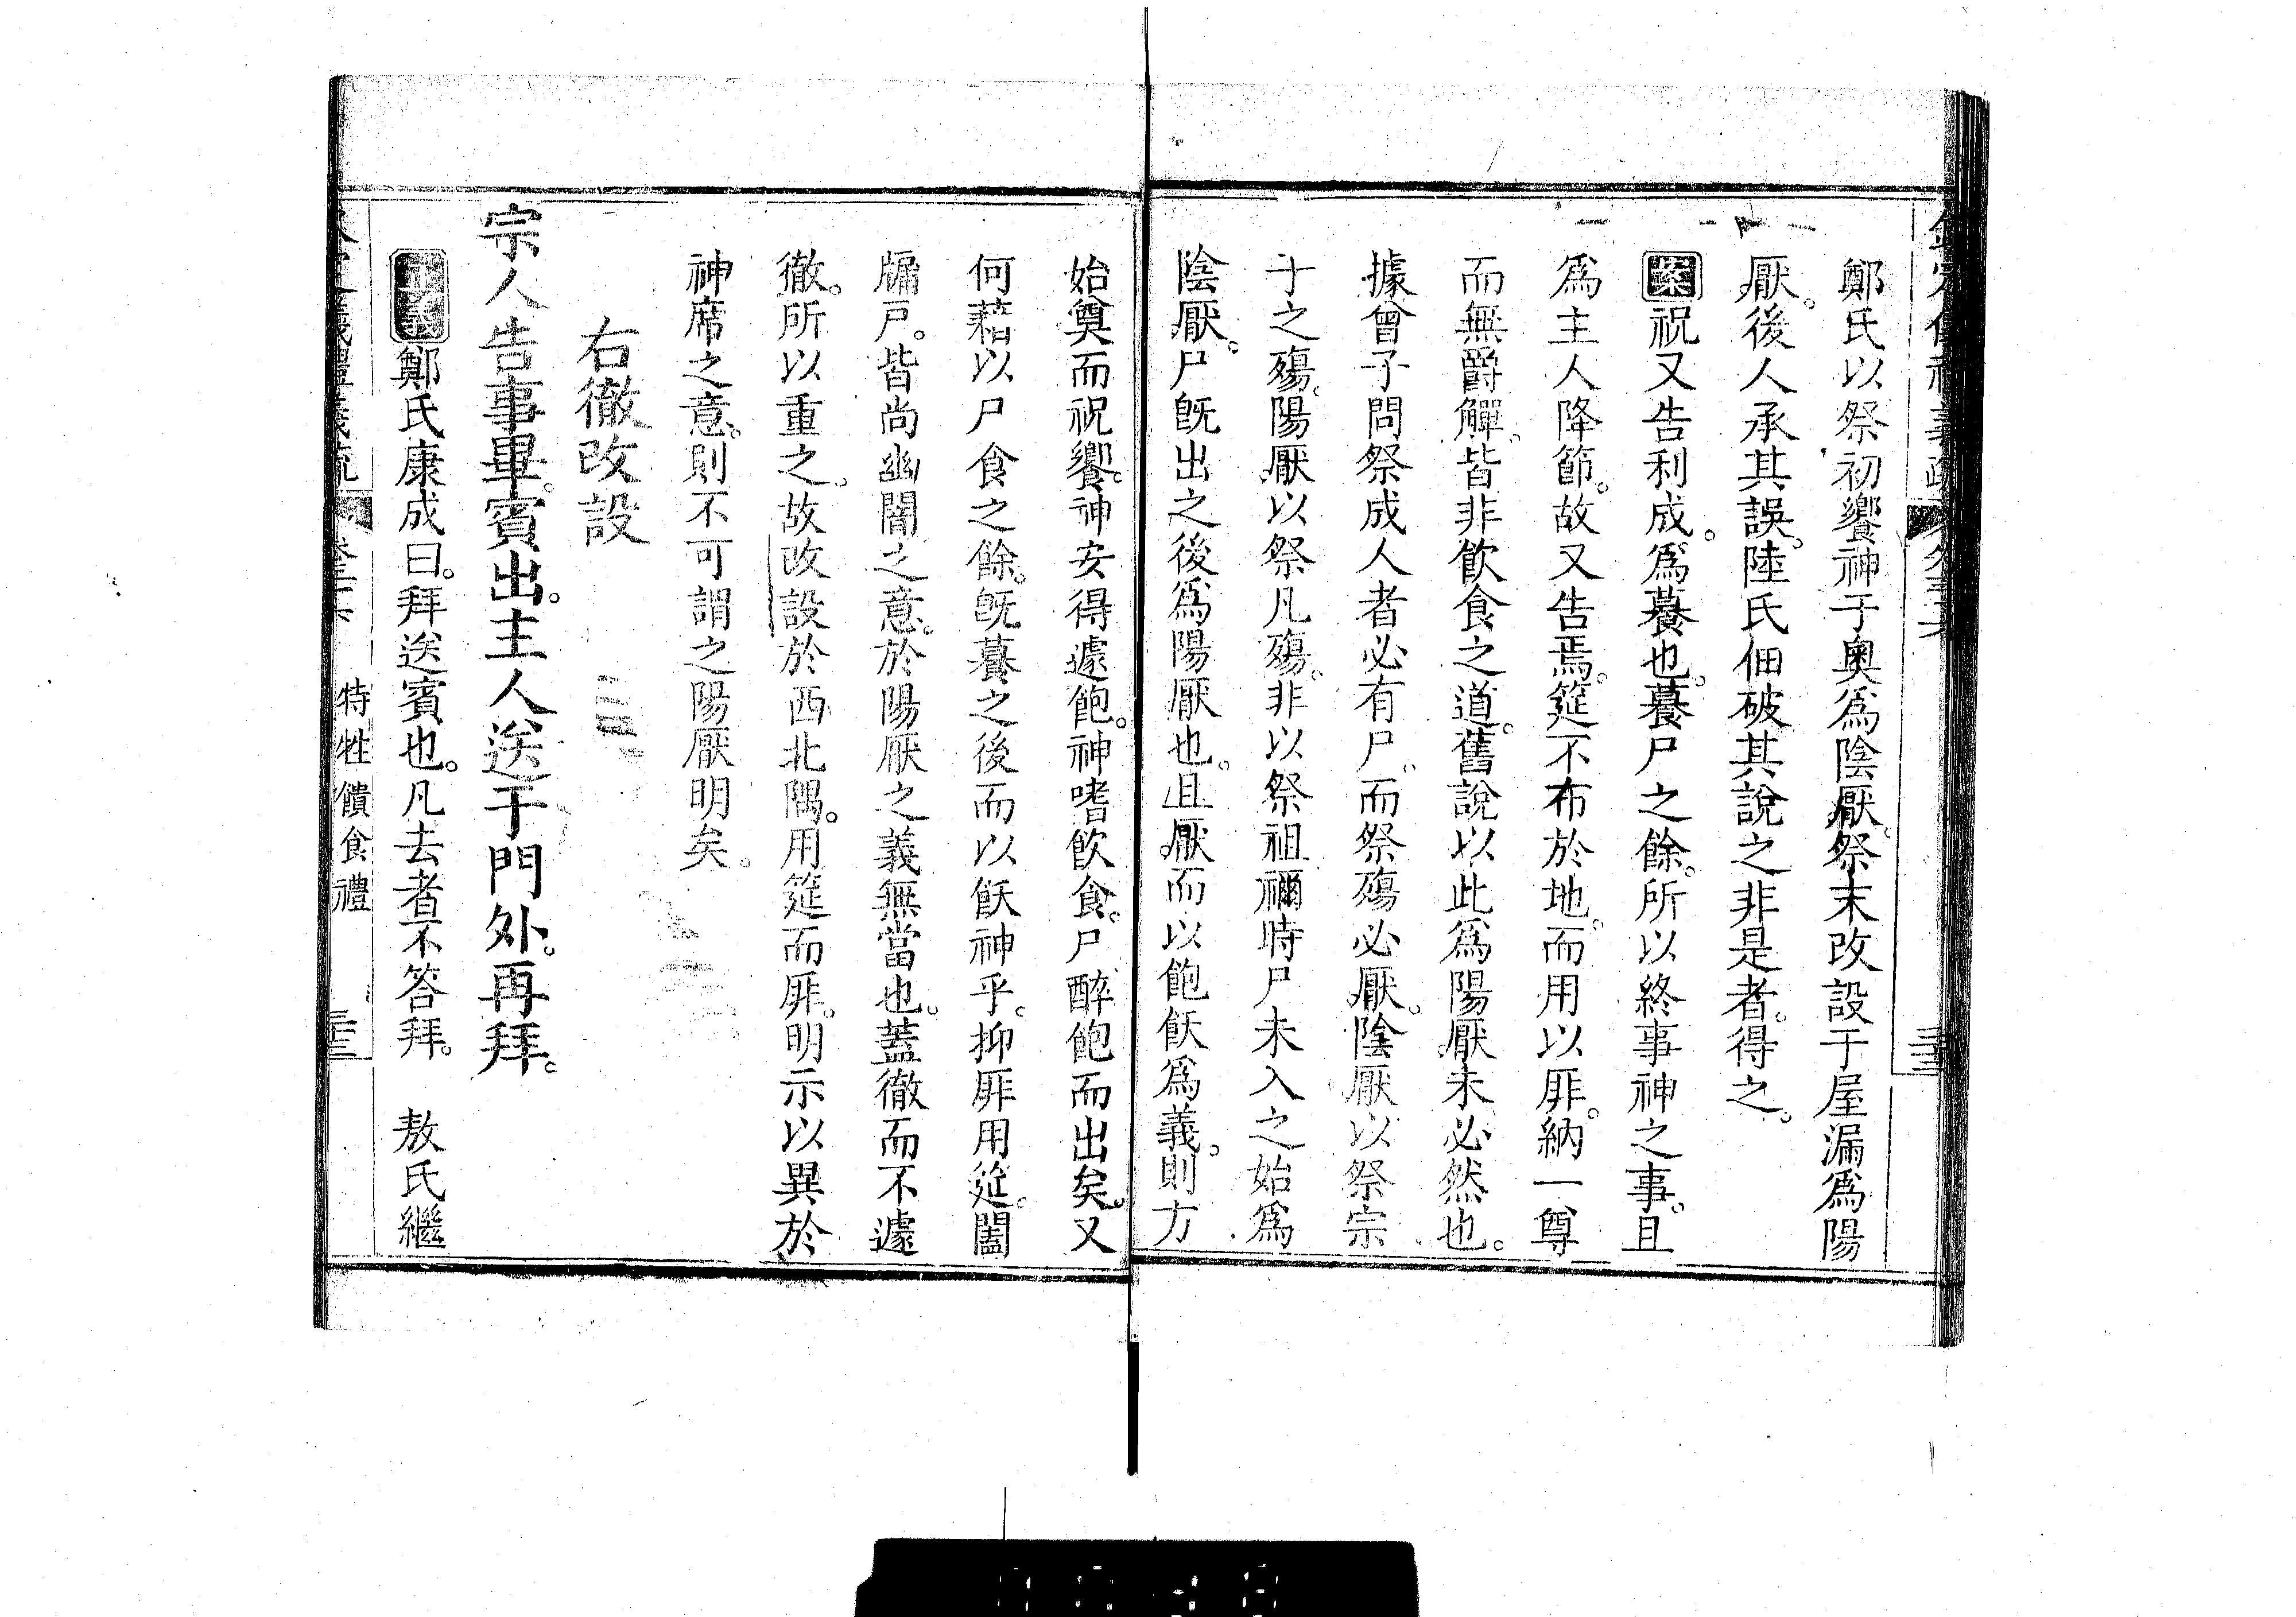 鄭氏以祭初饗神于奧爲陰厭。祭末改設于屋漏爲陽
厭。後人承其誤。陸氏佃破其說之非是者。得之。
案祝又告利成。爲養也。養尸之餘。所以終事神之事。且
爲主人降節。故又告焉。筵不布於地。而用以厞。納一尊
而無爵觶。皆非飲食之道。舊說以此爲陽厭。未必然也。
據曾子問祭成人者必有尸。而祭殤必厭。陰厭以祭宗
子之殤。陽厭以祭凡殤。非以祭祖禰時尸未入之始爲
陰厭。尸旣出之後爲陽厭也。且厭而以飽飫爲義。則方
始奠而祝饗。神安得遽飽。神嗜飲食。尸醉飽而出矣。又
何藉以尸食之餘。旣養之後而以飫神乎。抑厞用筵。闔
牖戶。皆尚幽闇之意。於陽厭之義無當也。蓋徹而不遽
徹。所以重之。故改設於西北隅。用筵而厞。明示以異於
神席之意。則不可謂之陽厭明矣。
右徹改設
宗人告事畢。賓出。主人送于門外。再拜。
正義鄭氏康成曰。拜送賓也。凡去者不答拜。 敖氏繼
特牲饋食禮